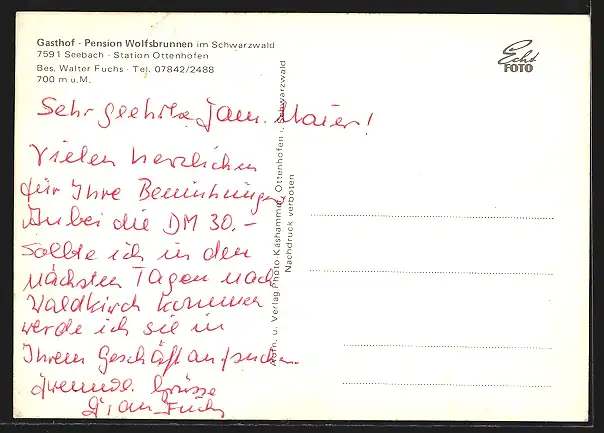 Gasthof · Pension Wolfsbrunnen im Schwarzwald
7591 Seebach · Station Ottenhöfen
Bes. Walter Fuchs · Tel. 07842/2488
700 m ü. M.
Echt
FOTO
Sehr geehrte Fam. Maier!
Vielen herzlichen
für Ihre Bemühungen
Anbei die DM 30.–
Sollte ich in den
nächsten Tagen nach
Waldkirch kommen
werde ich sie in
Ihrem Geschäft aufsuchen.
freundl. Grüsse
Fuchs
Aufn. u. Verlag Photo-Käshammer, Ottenhöfen i. Schwarzwald
Nachdruck verboten